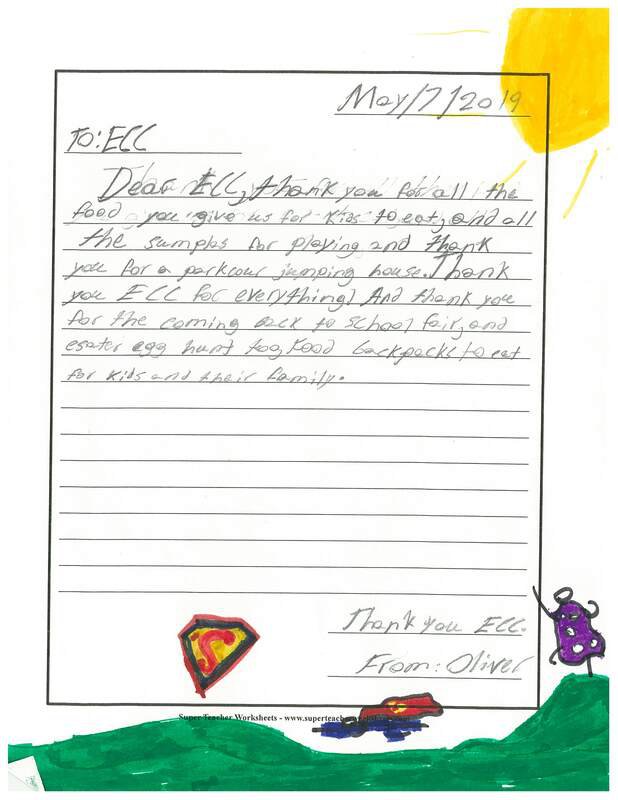 May/7/2019
To: ECC
Dear ECC, thank you for all the
food you give us for kids to eat, and all
the sumples for playing and thank
you for a parkour jumping house. Thank
you ECC for everything! And thank you
for the coming back to school fair, and
esater egg hunt too, food backpacks to eat
for kids and their family.
Thank you ECC.
From: Oliver
S
Super Teacher Worksheets - www.superteacher